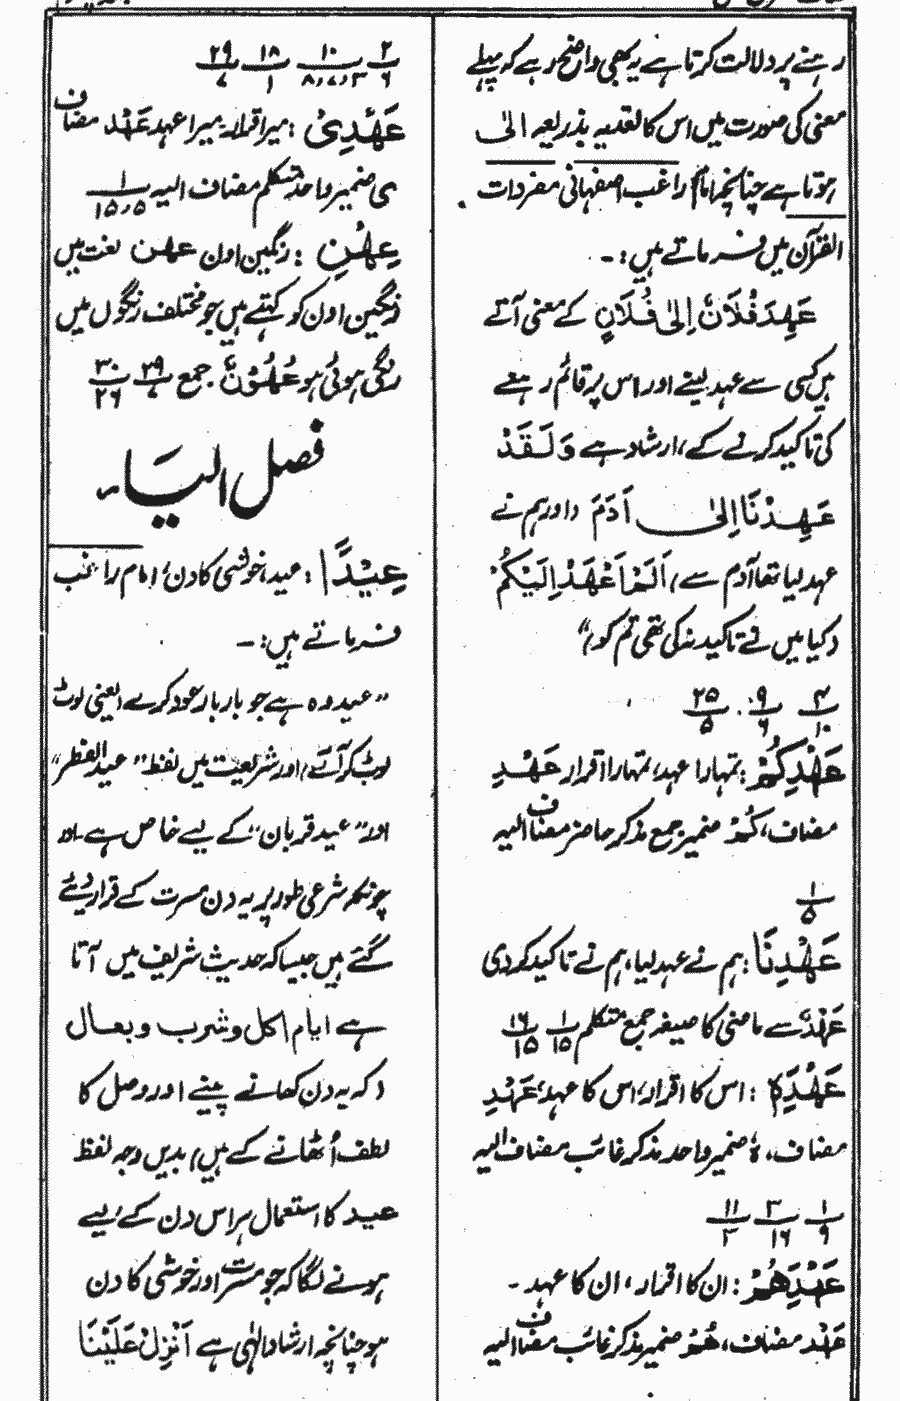 رہنے پر دلالت کرتا ہے یہ بھی واضح رہے کہ پہلے
معنی کی صورت میں اس کا تعدیہ بذریعہ الیٰ
ہوتا ہے چنانچہ امام راغب اصفہانی مفردات
القرآن میں فرماتے ہیں:۔
عَهِدَ فُلَانٌ اِلیٰ فُلَانٍ کے معنی آتے
ہیں کسی سے عہد لینے اور اس پر قائم رہنے
کی تاکید کرنے کے، ارشاد ہے وَلَقَدْ
عَهِدْنَا اِلیٰ اٰدَمَ (اور ہم نے
عہد لیا تھا آدم سے) اَلَمْ اَعْهَدْ اِلَيْكُمْ
(کیا میں نے تاکید نہ کی تھی تم کو)"
۳/۱۰ ۹/۶ ۲۵/۵
عَهْدِكُمْ: تمہارا عہد، تمہارا اقرار عَهْدِ
مضاف، كُمْ ضمیر جمع مذکر حاضر مضاف الیہ
۱/۵
عَهِدْنَا: ہم نے عہد لیا، ہم نے تاکید کردی
عَهْدٌ سے ماضی کا صیغہ جمع متکلم ۱/۱۵ ۱۶/۱۵
عَهْدِهٖ: اس کا اقرار، اس کا عہد، عَهْدِ
مضاف، ہٗ ضمیر واحد مذکر غائب مضاف الیہ
۱/۹ ۳/۱۶ ۱۱/۳
عَهْدِهِمْ: ان کا اقرار، ان کا عہد۔
عَهْد مضاف، هُمْ ضمیر مذکر غائب مضاف الیہ
۲/۶ ۱۰/۸،۷،۳ ۱۸/۱ ۲۹/۷
عَهْدِیْ: میرا اقرار، میرا عہد عَهْد مضاف
ی ضمیر واحد متکلم مضاف الیہ ۱/۱۵،۵
عِهْنِ: رنگین اون عہن لغت میں
رنگین اون کو کہتے ہیں جو مختلف رنگوں میں
رنگی ہوئی ہو عُهُوْنٌ جمع ۲۹/۷ ۳۰/۲۶
فصل الیاء
عِیْدًا: عید، خوشی کا دن، امام راغب
فرماتے ہیں:۔
"عید وہ ہے جو بار بار عود کرے (یعنی لوٹ
لوٹ کر آئے) اور شریعت میں لفظ "عید الفطر"
اور "عید قربان" کے لیے خاص ہے۔ اور
چونکہ شرعی طور پر یہ دن مسرت کے قرار دیئے
گئے ہیں جیسا کہ حدیث شریف میں آتا
ہے ایام اکل و شرب و بعال
(کہ یہ دن کھانے پینے اور وصل کا
لطف اُٹھانے کے ہیں) بدیں وجہ لفظ
عید کا استعمال ہر اس دن کے لیے
ہونے لگا کہ جو مسرت اور خوشی کا دن
ہو چنانچہ ارشاد الٰہی ہے اَنْزِلْ عَلَیْنَا